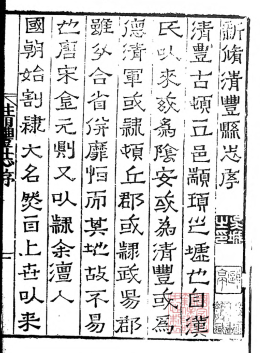 新脩清豐縣志序
清豐古頓丘邑顓頊之墟也自漢
民以來或為陰安或為清豐或為
德清軍或隸頓丘郡或隸武陽郡
雖分合省併靡恒而其地故不易
也唐宋金元則又以隸余澶人
國朝始割隸大名然而上世以來